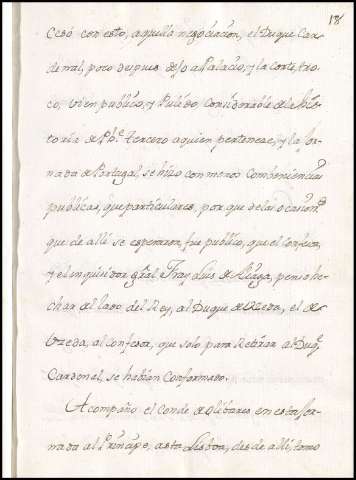 18
Cesó con esto, aquella negociacion, el Duque Car
denal, poco despues dejo a Palacio, y la corte, tro
co, bien publico, y
toria de Phe. tercero a quien pertenece, y la jor
nada de Portugal, se hizo con menos Combeniencias
publicas, que particulares, por que de las ocasiones
que de alli se esperaron, fue publico, que el Confesor,
y el inquisidor gral. Fray Luis de Aliaga, penso he
char del lado del Rey, al Duque de Uzeda, el de
Uzeda, al confesor, que solo para Retirar al Duq.
Cardenal, se habian Conformado.
Acompaño el Conde de olibares en esta jor
nada al Principe, asta Lisboa, desde alli, tomo